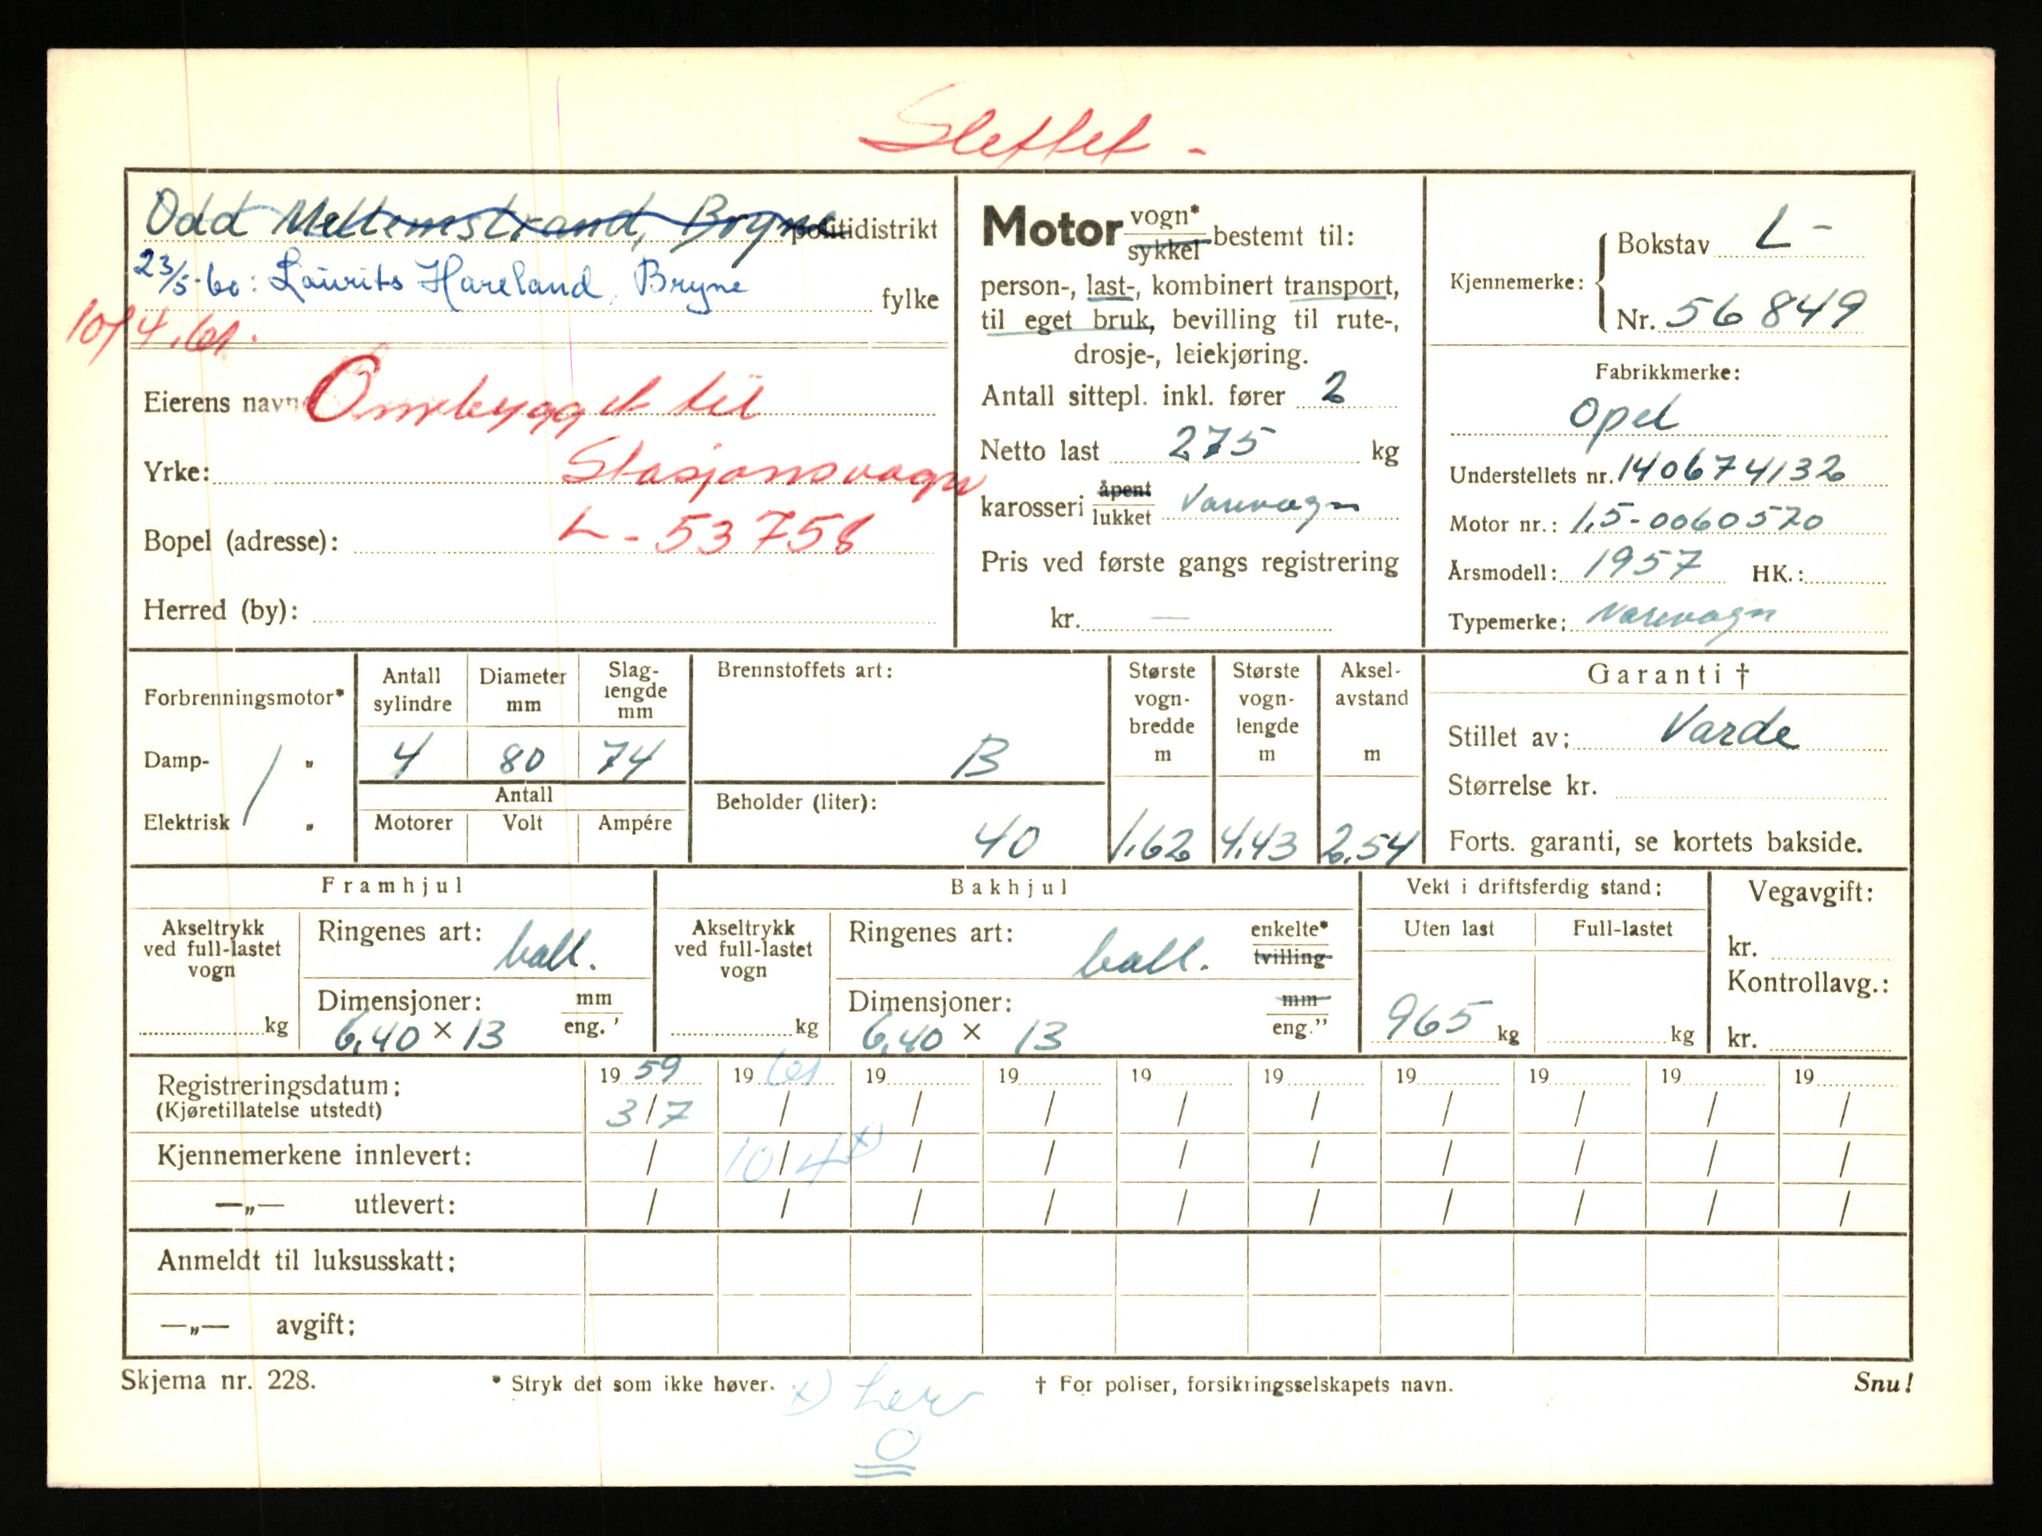 Slettet -
Odd Mellemstrand, Bryne politidistrikt
23/5-60: Laurits Hareland, Bryne fylke
10/4.61.
Eierens navn Ombygget til
Yrke: Stasjonsvogn
Bopel (adresse): L - 53758
Herred (by):
Motor vogn* sykkel bestemt til:
person-, last-, kombinert transport,
til eget bruk, bevilling til rute-,
drosje-, leiekjøring.
Antall sittepl. inkl. fører 2
Netto last 275 kg
karosseri åpent lukket Varevogn
Pris ved første gangs registrering
kr. —
Kjennemerke: Bokstav L -
Nr. 56849
Fabrikkmerke:
Opel
Understellets nr. 140674132
Motor nr.: 1,5-0060570
Årsmodell: 1957 HK.:
Typemerke: Varevogn
Forbrenningsmotor*
Damp- / "
Elektrisk "
Antall sylindre
4
Diameter mm
80
Slag-lengde mm
74
Antall
Motorer Volt Ampére
Brennstoffets art:
B
Beholder (liter):
40
Største vogn-bredde m
1,62
Største vogn-lengde m
4,43
Aksel-avstand m
2,54
Garanti †
Stillet av: Varde
Størrelse kr.
Forts. garanti, se kortets bakside.
Framhjul
Akseltrykk ved full-lastet vogn
kg
Ringenes art: ball.
Dimensjoner: mm eng. '
6,40 × 13
Bakhjul
Akseltrykk ved full-lastet vogn
kg
Ringenes art: ball.
enkelte* tvilling
Dimensjoner: mm eng."
6,40 × 13
Vekt i driftsferdig stand:
Uten last Full-lastet
965 kg kg
Vegavgift:
kr.
Kontrollavg.:
kr.
Registreringsdatum: 19 59 19 61 19 19 19 19 19 19 19 19
(Kjøretillatelse utstedt) 3/7 / / / / / / / / /
Kjennemerkene innlevert: / 10/4 x) / / / / / / / /
—„— utlevert: / / / / / / / / / /
Anmeldt til luksusskatt:
—„— avgift:
Skjema nr. 228. * Stryk det som ikke høver. † For poliser, forsikringsselskapets navn. Snu!
x)
O